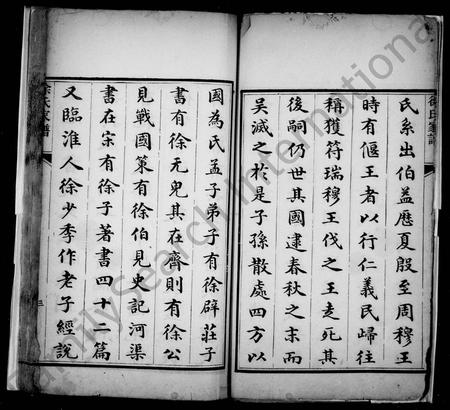 氏系出伯益歷夏殷至周穆王
時有偃王者以行仁義民歸往
稱獲符瑞穆王伐之王走死其
後嗣仍世其國逮春秋之末而
吳滅之於是子孫散處四方以
徐氏家譜
國為氏孟子弟子有徐辟莊子
書有徐无鬼其在齊則有徐公
見戰國策有徐伯見史記河渠
書在宋有徐子著書四十二篇
又臨淮人徐少季作老子經說
徐氏家譜
三
FamilySearch International